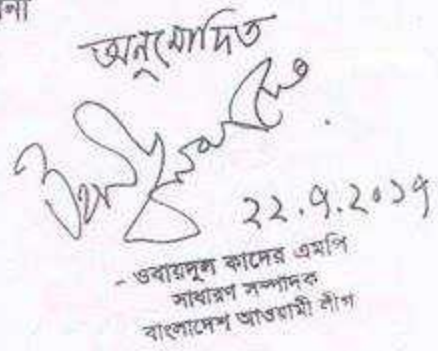 অনুমোদিত
২২.৭.২০১৭
- ওবায়দুল কাদের এমপি
সাধারণ সম্পাদক
বাংলাদেশ আওয়ামী লীগ